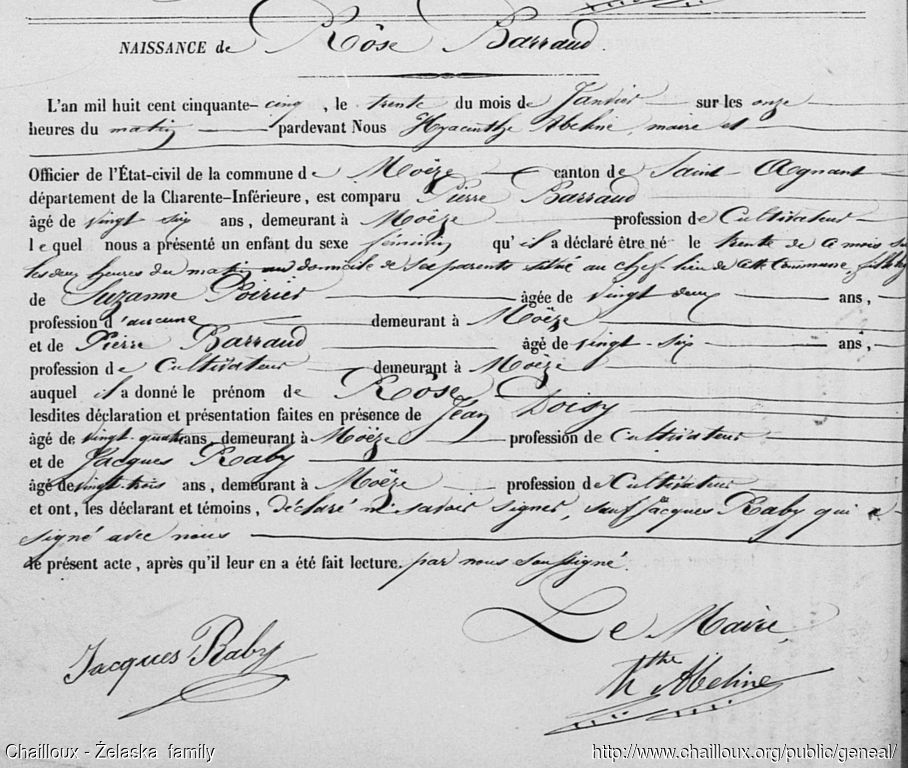 NAISSANCE de Rôse Barraud.
L'an mil huit cent cinquante-cinq, le trente du mois de Janvier sur les onze
heures du matin pardevant Nous Hyacinthe Abeline, maire et
Officier de l'État-civil de la commune de Moëze canton de Saint Agnant
département de la Charente-Inférieure, est comparu Pierre Barraud
âgé de vingt six ans, demeurant à Moëze profession de Cultivateur
lequel nous a présenté un enfant du sexe féminin qu'il a déclaré être né le trente de ce mois sur
les deux heures du matin au domicile de ses parents situé au chef-lieu de cette Commune, fille
de Suzanne Poirier âgée de vingt deux ans,
profession d'aucune demeurant à Moëze
et de Pierre Barraud âgé de vingt-six ans,
profession de Cultivateur demeurant à Moëze
auquel il a donné le prénom de Rôse
lesdites déclaration et présentation faites en présence de Jean Doisy
âgé de vingt-quatre ans, demeurant à Moëze profession de Cultivateur
et de Jacques Raby
âgé de vingt-trois ans, demeurant à Moëze profession de Cultivateur
et ont, les déclarant et témoins, déclaré ne savoir signer, sauf Jacques Raby qui a
signé avec nous
le présent acte, après qu'il leur en a été fait lecture. par nous soussigné.
Le Maire,
Jacques Raby
hthe Abeline
Chailloux - Želaska family http://www.chailloux.org/public/geneal/